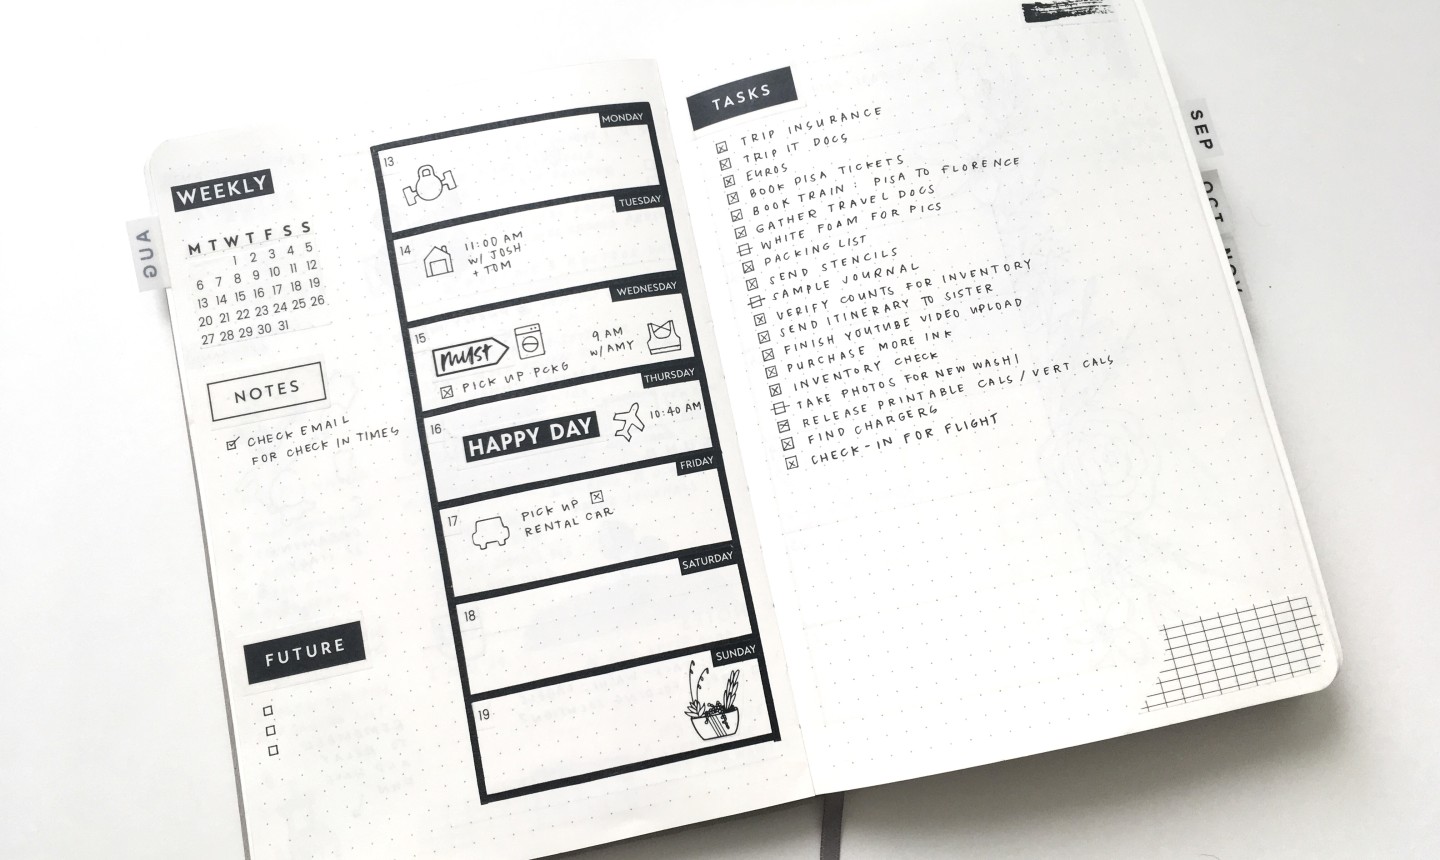 WEEKLY
M T W T F S S
1 2 3 4 5
6 7 8 9 10 11 12
13 14 15 16 17 18 19
20 21 22 23 24 25 26
27 28 29 30 31
NOTES
CHECK EMAIL
FOR CHECK IN TIMES
FUTURE
AUG
MONDAY
13
TUESDAY
14
11:00 AM
W/ JOSH
+ TOM
WEDNESDAY
15
MUST
9 AM
W/AMY
PICK UP PCKG
THURSDAY
16
HAPPY DAY
10:40 AM
FRIDAY
17
PICK UP
RENTAL CAR
SATURDAY
18
SUNDAY
19
TASKS
TRIP INSURANCE
TRIP IT DOCS
EUROS
BOOK PISA TICKETS
BOOK TRAIN: PISA TO FLORENCE
GATHER TRAVEL DOCS
WHITE FOAM FOR PICS
PACKING LIST
SEND STENCILS
SAMPLE JOURNAL
VERIFY COUNTS FOR INVENTORY
SEND ITINERARY TO SISTER
FINISH YOUTUBE VIDEO UPLOAD
PURCHASE MORE INK
INVENTORY CHECK
TAKE PHOTOS FOR NEW WASHI
RELEASE PRINTABLE CALS / VERT CALS
FIND CHARGERS
CHECK-IN FOR FLIGHT
SEP
OCT
NOV